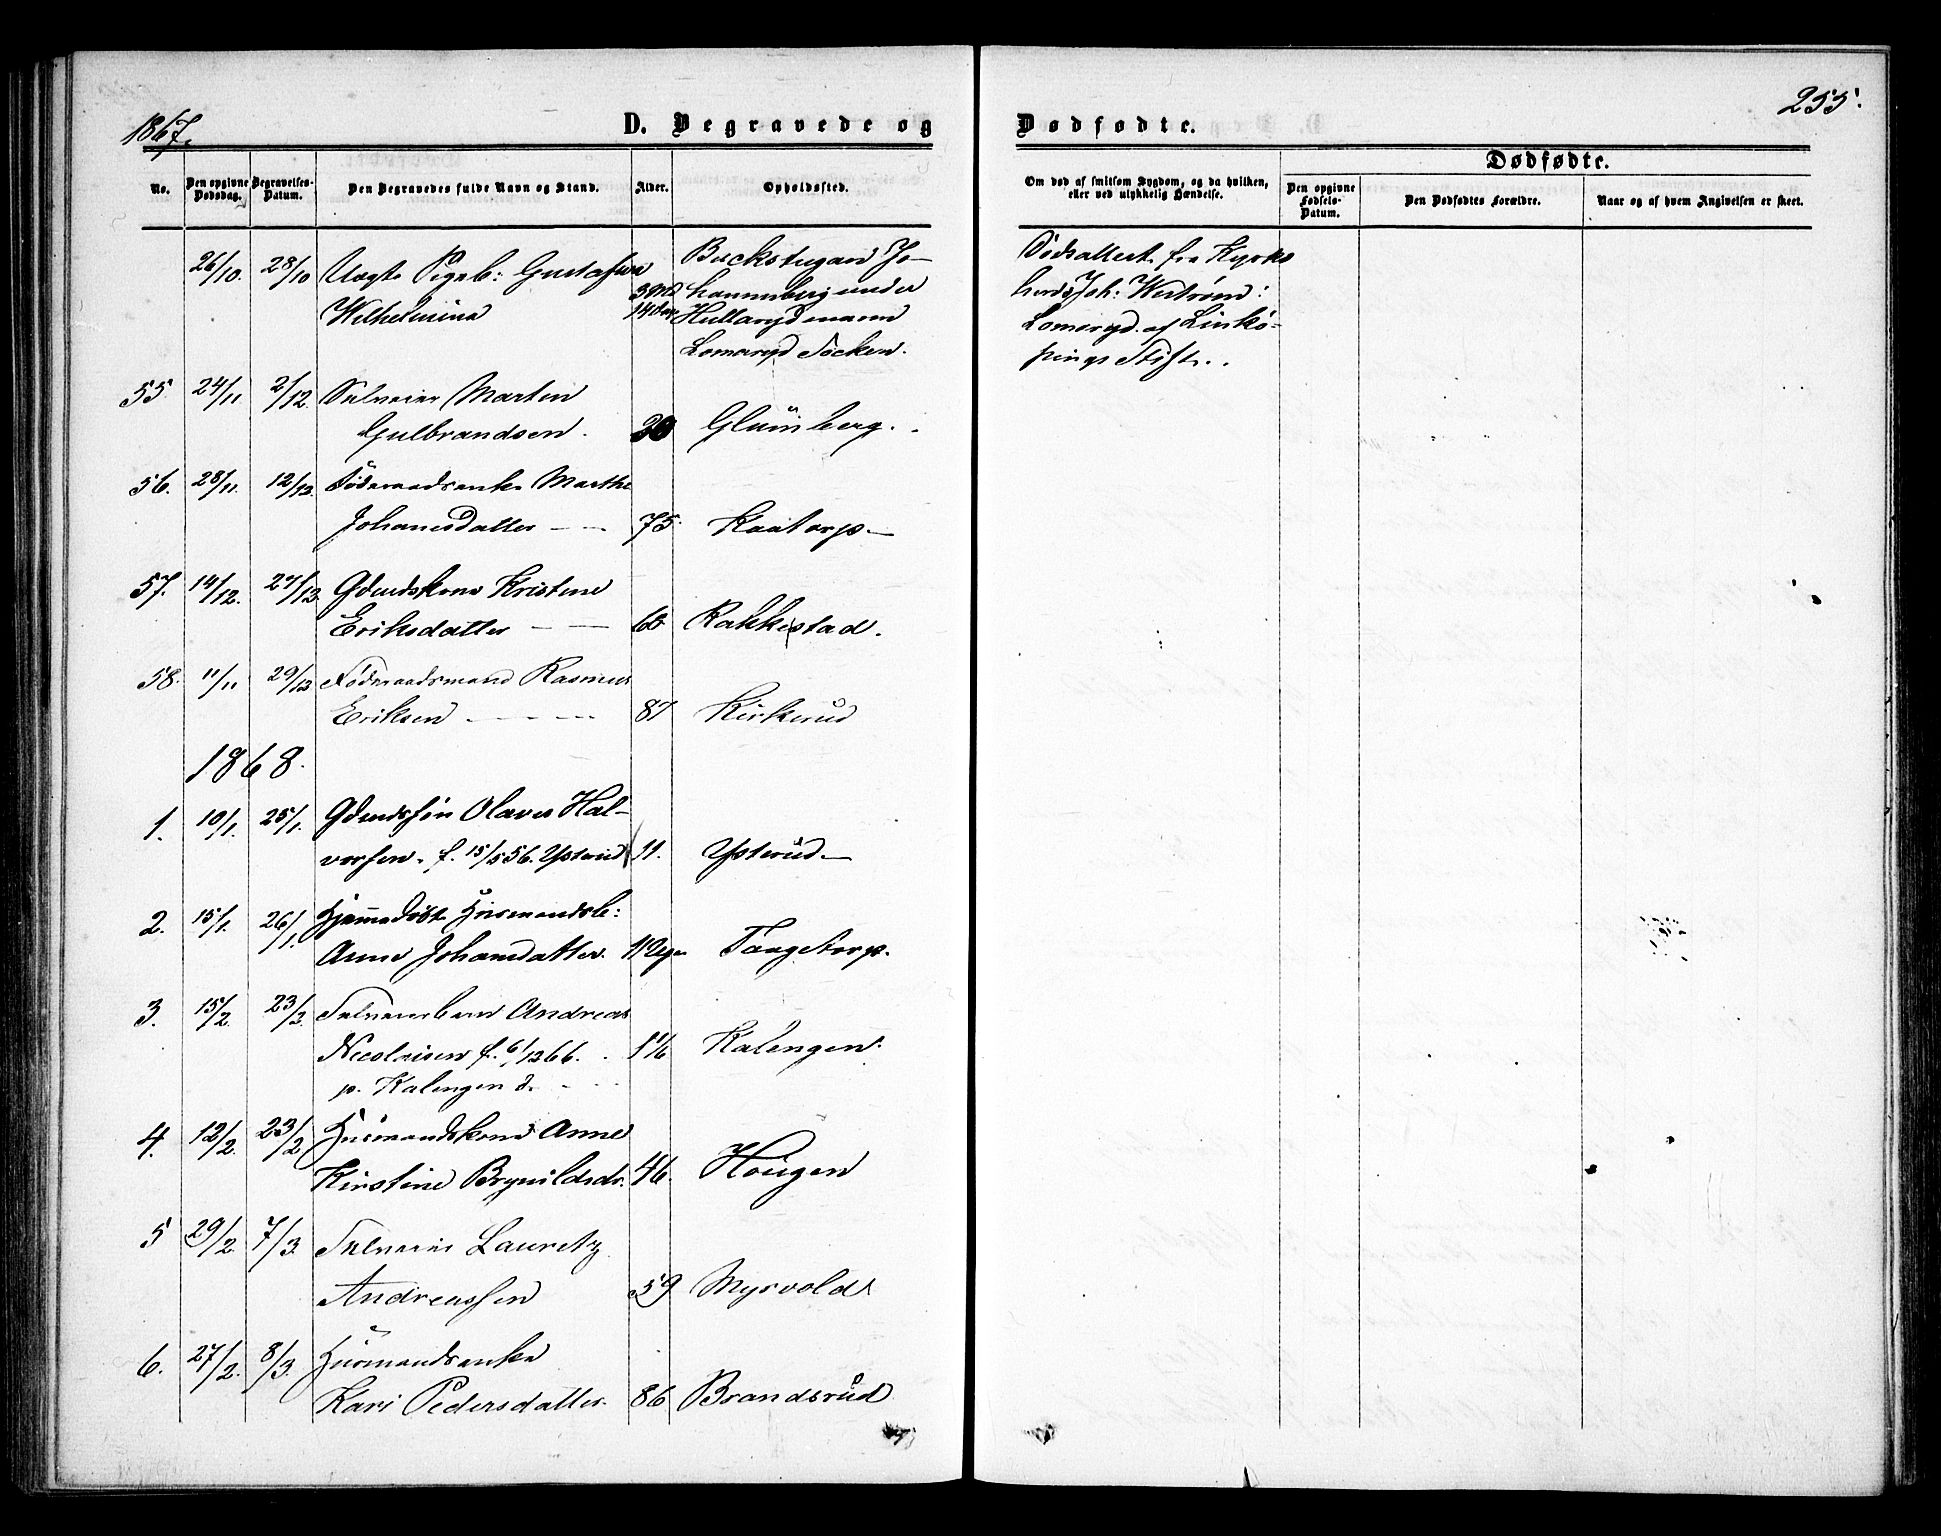 1867.
D. Begravede og
Dødfødte.
255.
No.
Den opgivne Dødsdag.
Begravelses-Datum.
Den Begravedes fulde Navn og Stand.
Alder.
Opholdssted.
Om død af smitsom Sygdom, og da hvilken,
eller ved ulykkelig Hændelse.
Dødfødte.
Den opgivne Fødsels-Datum.
Den Dødfødtes Forældre.
Naar og af hvem Angivelsen er skeet.
26/10. 28/10 Uægte Pigeb: Gustafva
Wilhelmina
3 Md 14 Dage
Backstugan Jo-
hannesberg under
Hullaryd
Lomaryd Socken.
Dödsattest fra Kyrko
herde Joh: Westrøm:
Lomaryd af Linkö-
pings Stift.
55. 24/11 2/12. Selveier Martin
Gulbrandsen. Glümberg.
56. 28/11. 12/12. Föderaadsenke Marthe
Johanesdatter — — 75. Kaatorp —
57. 14/12. 27/12. Gdmdskone Kristine
Eriksdatter — — 60 Rakkestad.
58. 11/11 29/12 Föderaadsmand Rasmus
Eriksen - - - - 87 Kirkerud
1868.
1. 10/1. 25/1. Gdmdssön Olaves Hal-
vorsen. f. 15/5 56. Ysterud 11. Ysterüd —
2. 15/1. 26/1. Hjemmedöbt Hüsmandsb:
Anne Johansdatter. 11 Uger Tangetorp.
3. 15/2. 23/2. Selveierbarn Andreas
Nicolaisen f. 6/12 66. 1 1/6 Kalengen.
p. Kalengen d.
4. 12/2. 23/2 Hüsmandskone Anne
Kirstine Brynildsdr. 46. Hougen
5 29/2. 7/3. Selveier Lauretz
Andreassen 59 Myrvold
6. 27/2. 8/3. Hüsmandsenke
Kari Pedersdatter. 86 Brandsrüd